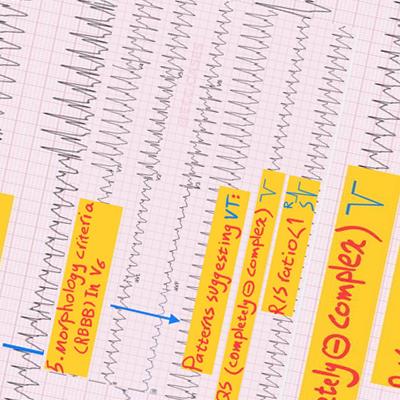 5. morphology criteria
(RBBB) In V6
Patterns suggesting VT:
QS (completely ⊖ complex)
R/S ratio<1 R
S
tely ⊖ complex)